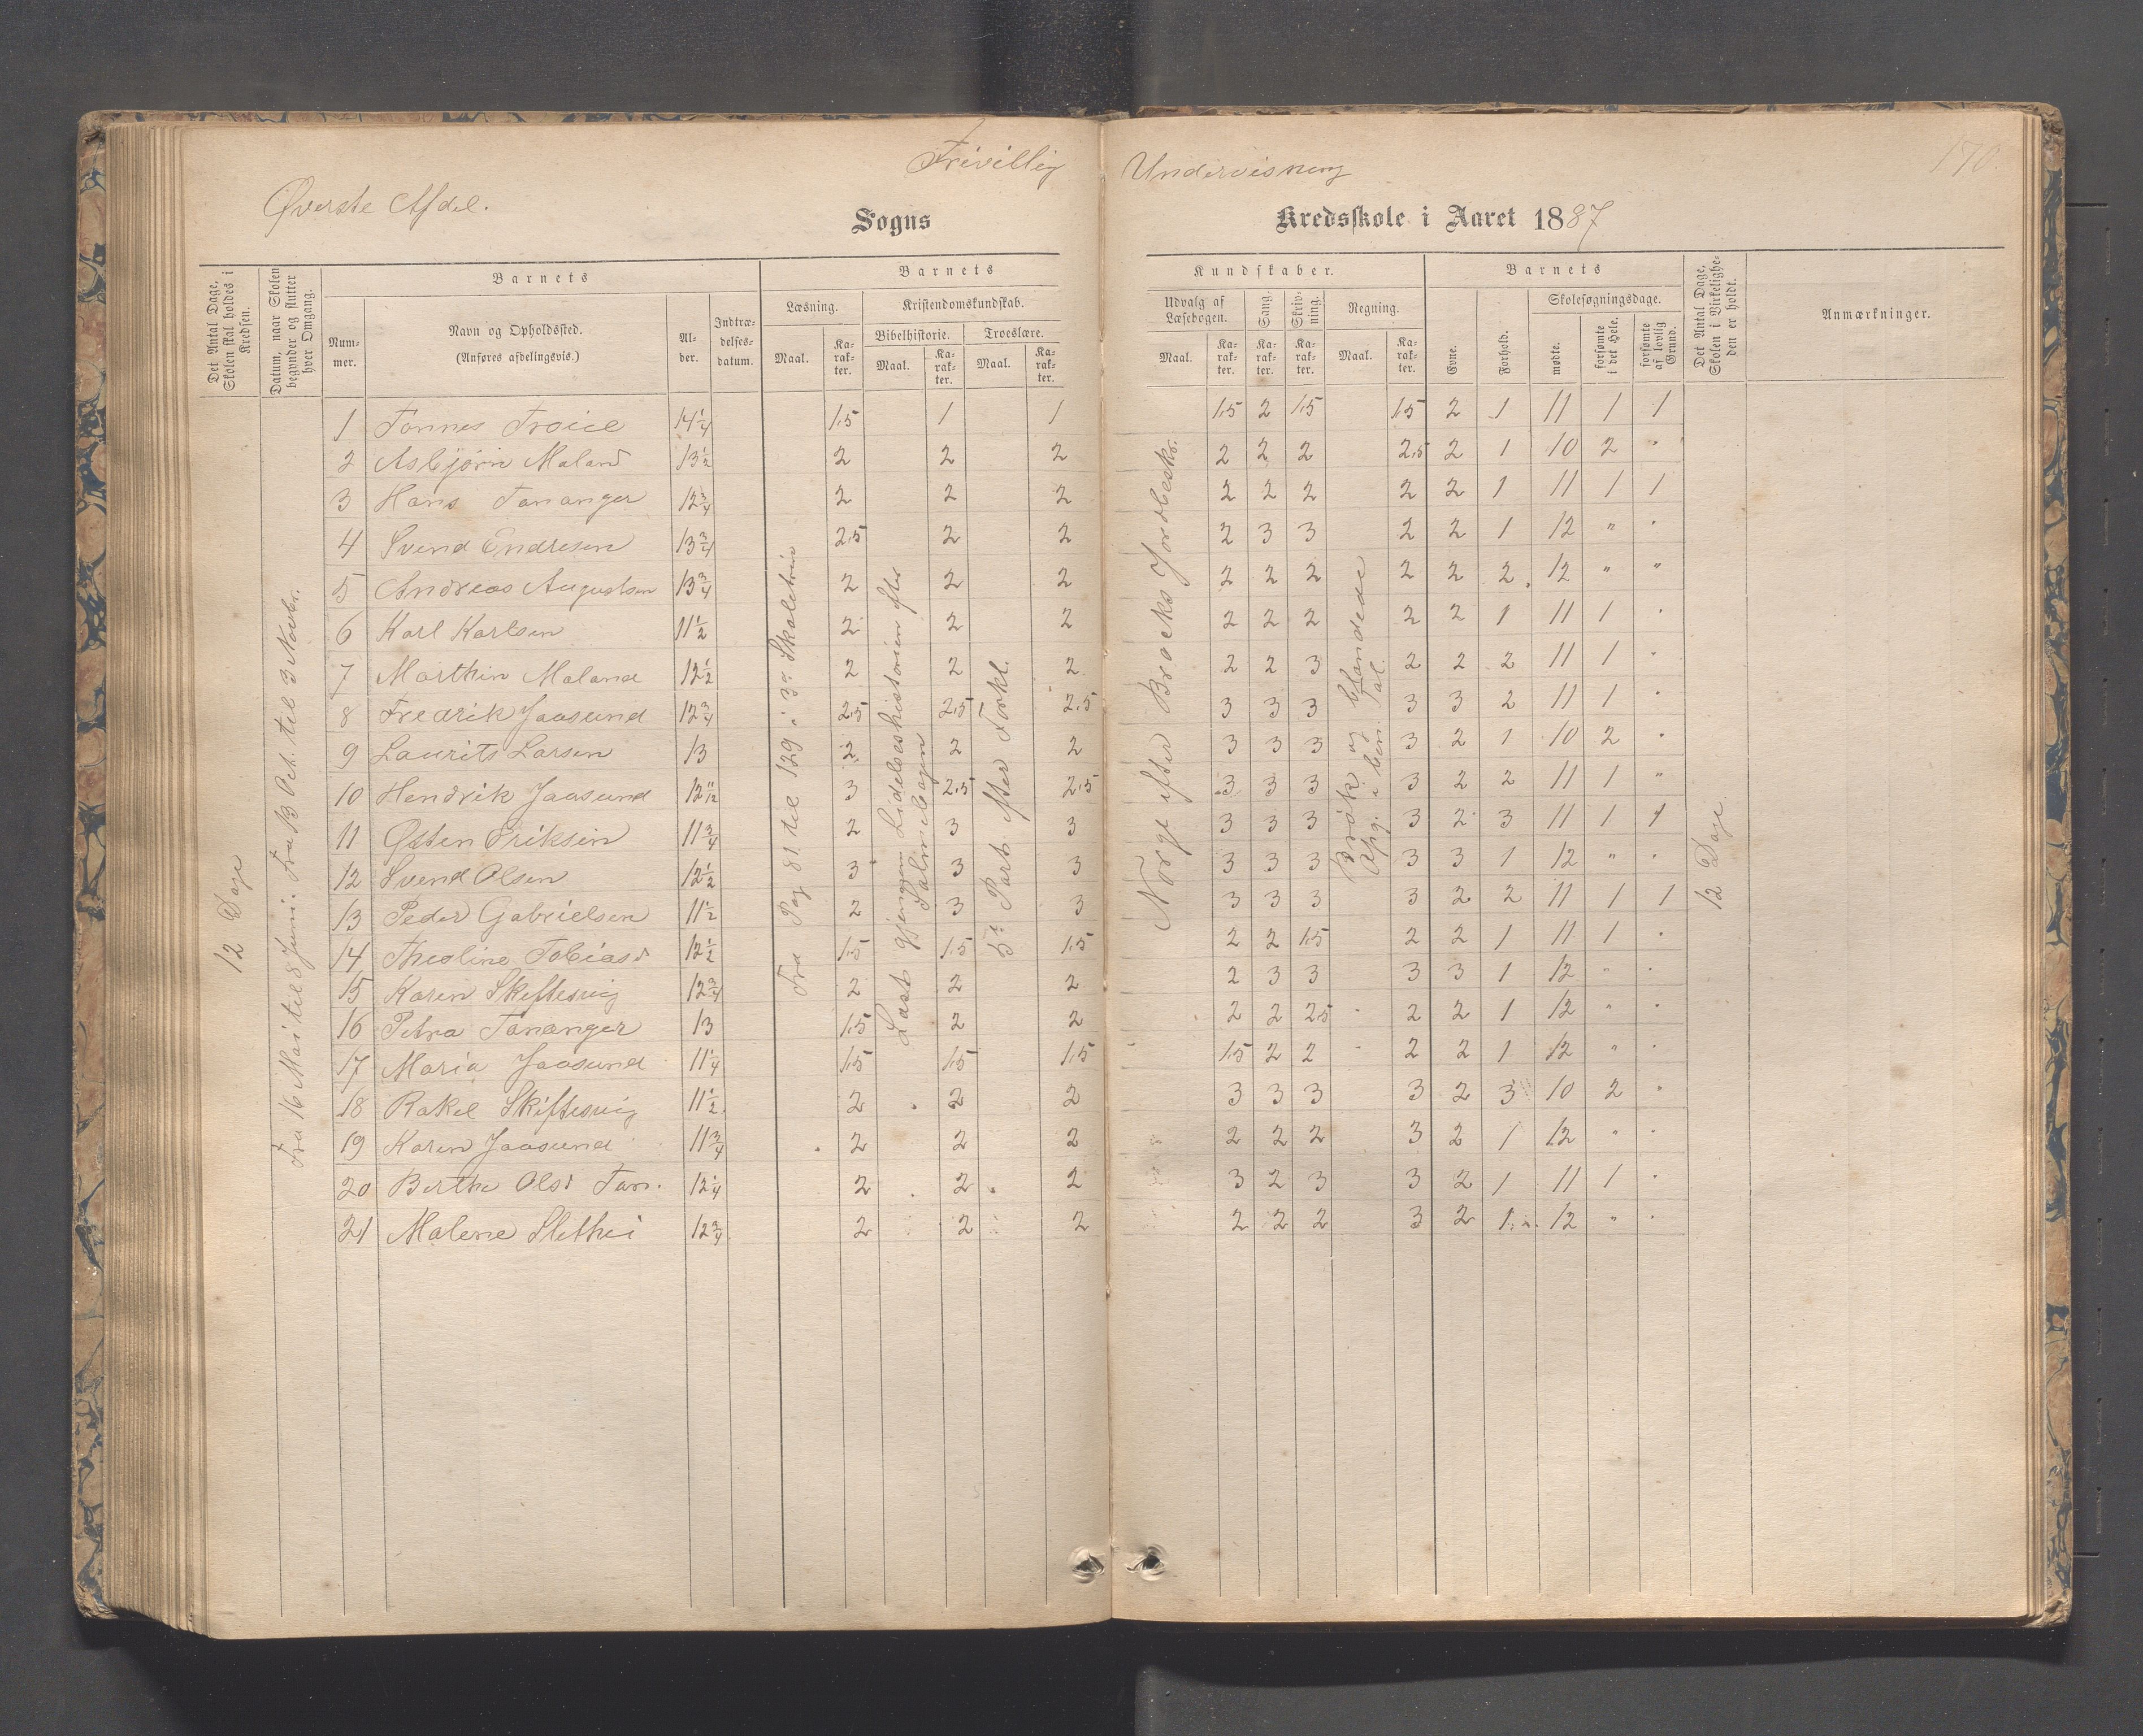 Frivillig Undervisning
170
Øverste Afdel.
Sogns Kredsskole i Aaret 1887
Det Antal Dage, Skolen skal holdes i Kredsen.
Datum, naar Skolen begynder og slutter hver Omgang.
Barnets
Nummer.
Navn og Opholdssted.
(Anføres afdelingsvis.)
Alder.
Indtrædelsesdatum.
Barnets Kundskaber.
Læsning.
Maal.
Karakter.
Kristendomskundskab.
Bibelhistorie.
Maal.
Karakter.
Troeslære.
Maal.
Karakter.
Udvalg af Læsebogen.
Maal.
Karakter.
Sang.
Karakter.
Skrivning.
Karakter.
Regning.
Maal.
Karakter.
Barnets
Evne.
Forhold.
Skolesøgningsdage.
mødte.
forsømte i det Hele.
forsømte af lovlig Grund.
Det Antal Dage, Skolen i Virkeligheden er holdt.
Anmærkninger.
12 Dage
Fra 16 Mai til 8 Juni. Fra 13 Oct. til 3 Novbr.
Fra Pag 81 til 129 i 3die Skoletrin
Læst gjennem Lidelseshistorien efter Salmebogen
5te Part efter Forkl.
Norge efter Brocks Jordbeskr.
Brøk og blandede
Opg. i ben. Tal.
12 Dage
1 Tønnes Troice 14 1/4 1.5 1 1 1.5 2 1.5 1.5 2 1 11 1 1
2 Asbjørn Maland 13 1/2 2 2 2 2 2 2 2.5 2 1 10 2 "
3 Hans Tananger 12 3/4 2 2 2 2 2 2 2 2 1 11 1 1
4 Svend Endresen 13 3/4 2.5 2 2 2 3 3 2 2 1 12 " "
5 Andreas Augustsen 13 3/4 2 2 2 2 2 2 2 2 2 12 " "
6 Karl Karlsen 11 1/2 2 2 2 2 2 2 2 2 1 11 1 "
7 Marthin Maland 12 1/2 2 2 2 2 2 3 2 2 2 11 1 "
8 Fredrik Jaasund 12 3/4 2.5 2.5 2.5 3 3 3 3 3 2 11 1 "
9 Laurits Larsen 13 2 2 2 3 3 3 3 2 1 10 2 "
10 Hendrik Jaasund 12 11/12 3 2.5 2.5 3 3 3 3 2 2 11 1 "
11 Østen Eriksen 11 3/4 2 3 3 3 3 3 3 2 3 11 1 1
12 Svend Olsen 12 1/2 3 3 3 3 3 3 3 3 1 12 " "
13 Peder Gabrielsen 11 1/2 2 3 3 3 3 3 3 2 2 11 1 1
14 Theoline Tobiasd 12 1/2 1.5 1.5 1.5 2 2 1.5 2 2 1 11 1 "
15 Karen Skiftesvig 12 3/4 2 2 2 2 3 3 3 3 1 12 " "
16 Petra Tananger 13 1.5 2 2 2 2 2.5 2 2 1 12 " "
17 Maria Jaasund 11 1/4 1.5 1.5 1.5 1.5 2 2 2 2 1 12 " "
18 Rakel Skiftesvig 11 1/2 2 2 2 3 3 3 3 2 3 10 2 "
19 Karen Jaasund 11 3/4 2 2 2 2 2 2 3 2 1 12 " "
20 Berthe Olsd Tan. 12 1/4 2 2 2 3 2 3 3 2 1 11 1 "
21 Malene Slethei 12 3/4 2 2 2 2 2 2 3 2 1 12 " "